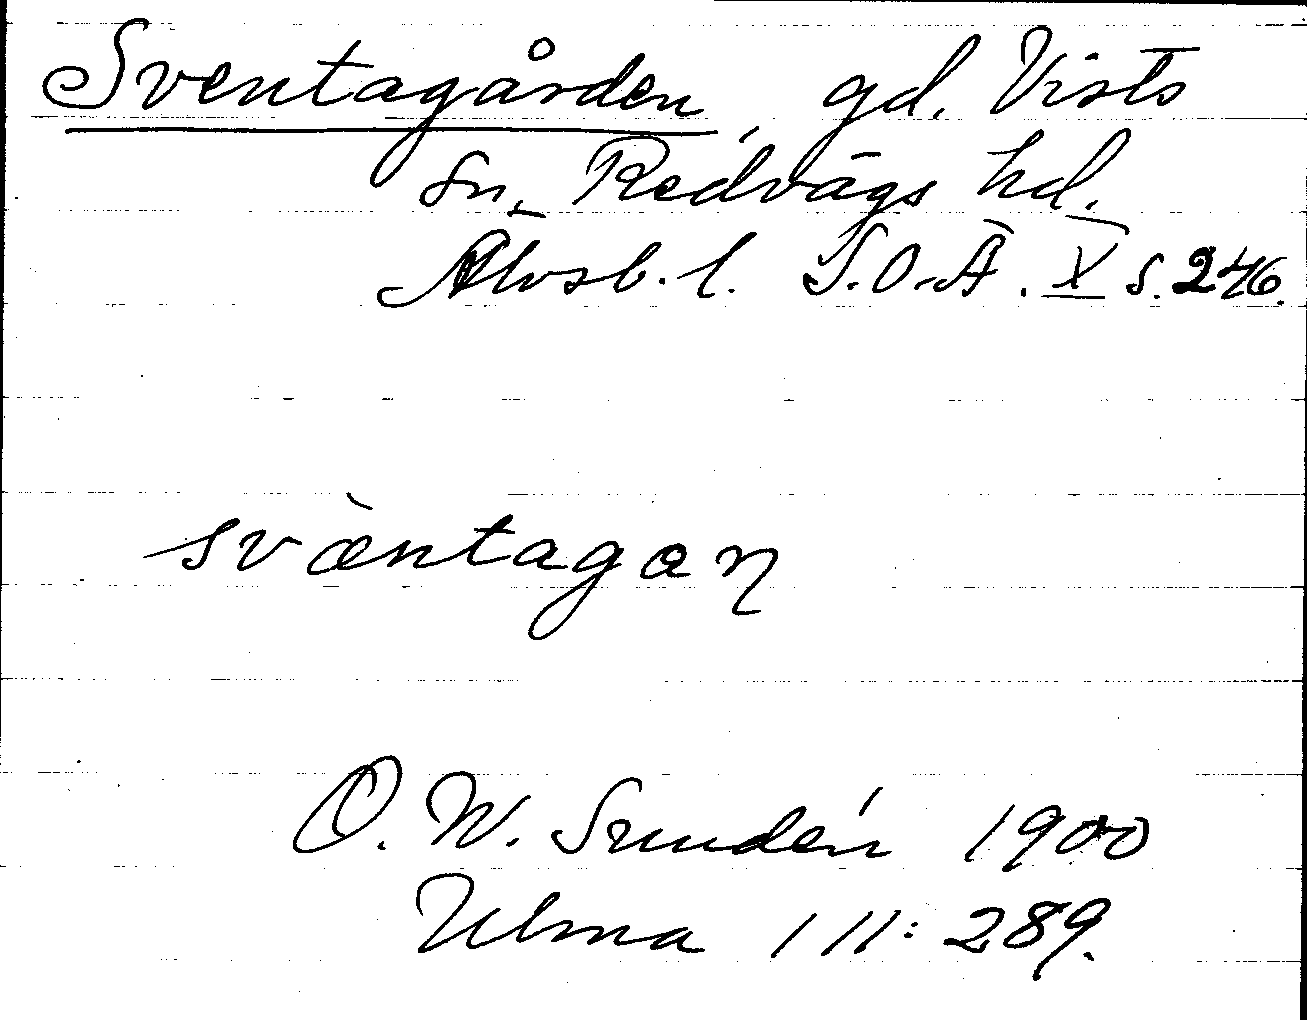 Sventagården, gd. Vists
sn, Redvägs hd.
Älvsb. l. S.O.Ä. X s. 246.
svæ̀ntagaɳ
O. W. Sundén 1900
Ulma 111: 289.